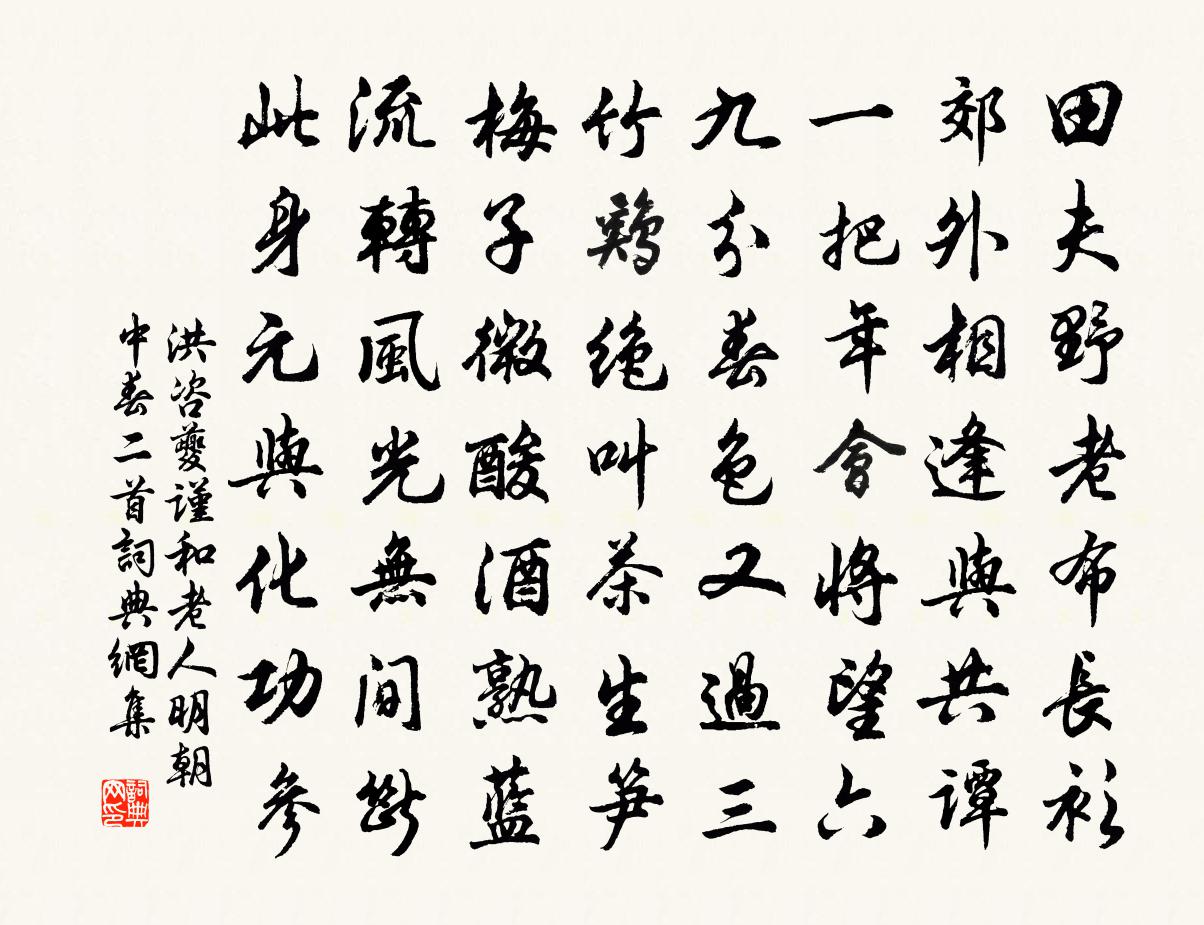 田夫野老布長衫
郊外相逢與共譚
一把年會將望六
九分春色又過三
竹鷄绝叫茶生笋
梅子微酸酒熟藍
流轉風光無间斷
此身元與化功參
洪咨夔謹和老人明朝
中春二首詞典網集
詞典网印